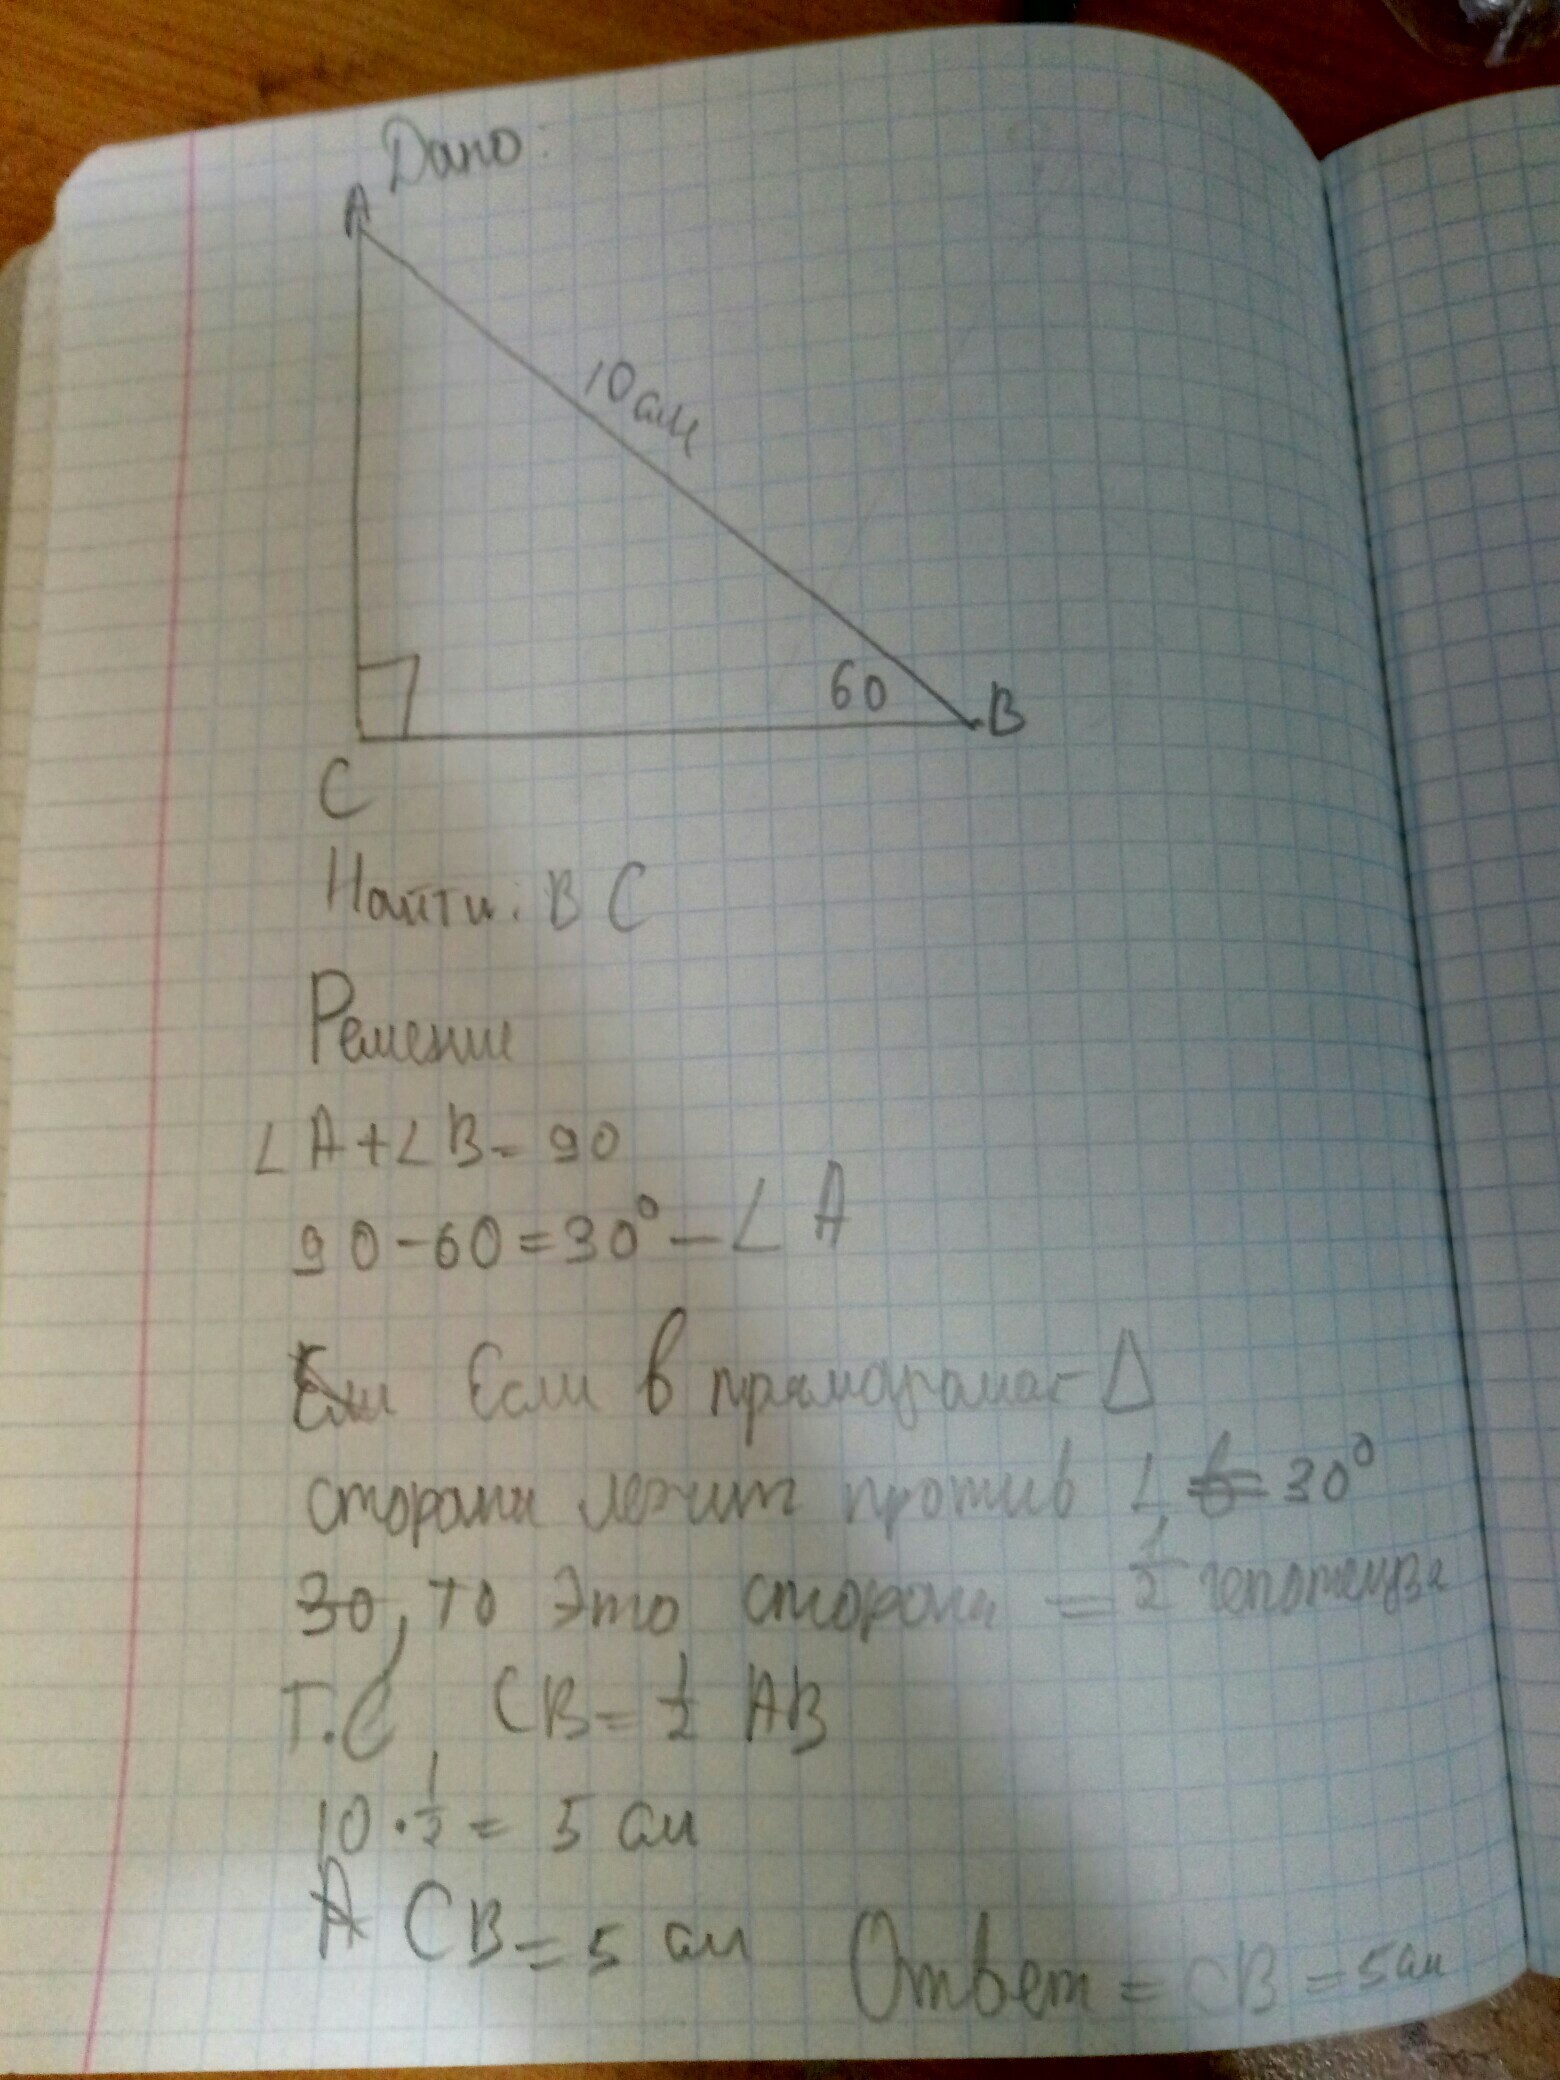 Дано:
A
10 см
60
B
C
Найти: BC
Решение
∠A+∠B=90
90-60=30°-∠A
Если Если в прямоугольном Δ
сторона лежит против ∠ в= 30°
30, то это сторона = 1/2 гепотенуза
Т.С CB=1/2 AB
10·1/2=5 см
A CB=5 см
Ответ=CB=5 см